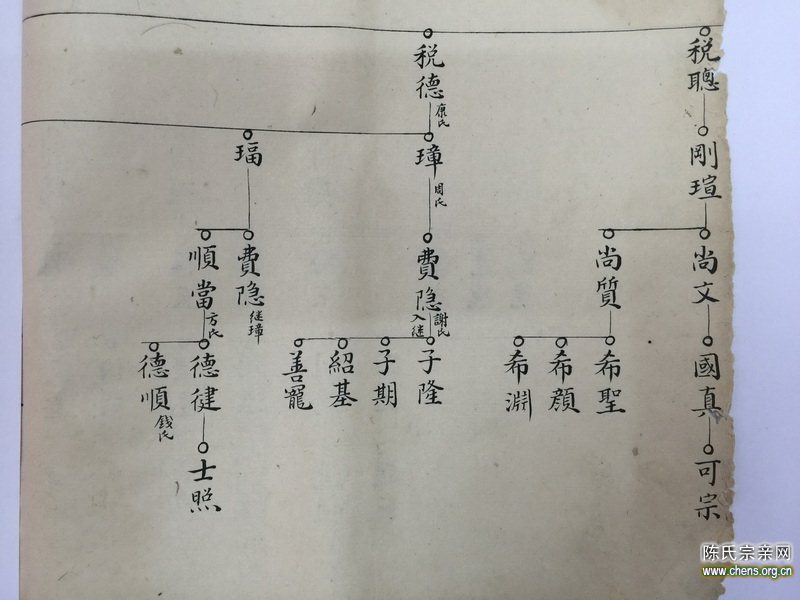 税聰
剛瑄
尚文
國真
可宗
尚質
希聖
希顏
希淵
税德
康氏
璋
周氏
費隐
謝氏
入继
子隆
子期
紹基
善寵
瑙
費隐
继璋
順當
方氏
德健
士照
德順
錢氏
陈氏宗亲网
www.chens.org.cn